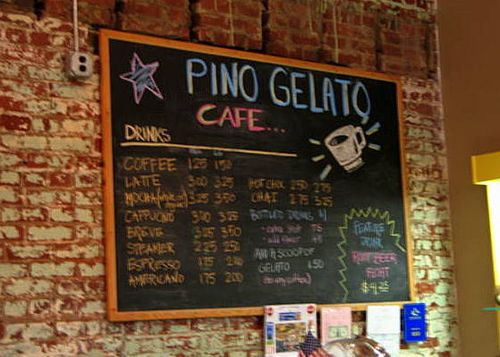 PINO GELATO
CAFE...
DRINKS
COFFEE 125 150
LATTE 300 325
MOCHA 325 350
CAPPUCINO 300 325
BREVE 325 350
STEAMER 225 250
ESPRESSO 175
AMERICANO 175 200
HOT CHOC 250 275
CHAI 275 325
BOTTLED DRINKS $1
extra shot 75
add flavor
ADD A SCOOP OF
GELATO 1.50
FEATURE
DRINK
ROOT BEER
FLOAT
$4.25